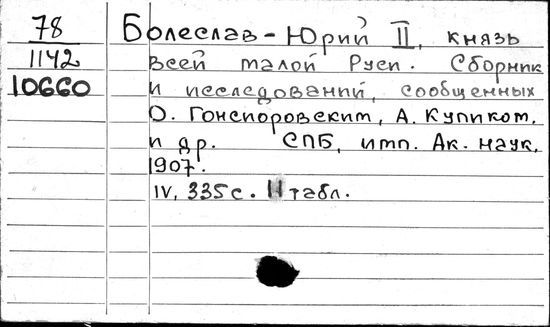 78
1142
10660
Болеслав - Юрий II, князь
всей малой Руси. Сборник
и исследований, сообщенных
О. Гонсиоровским, А. Куником,
и др. СПБ, имп. Ак. наук,
1907.
IV, 335с. 11 табл.